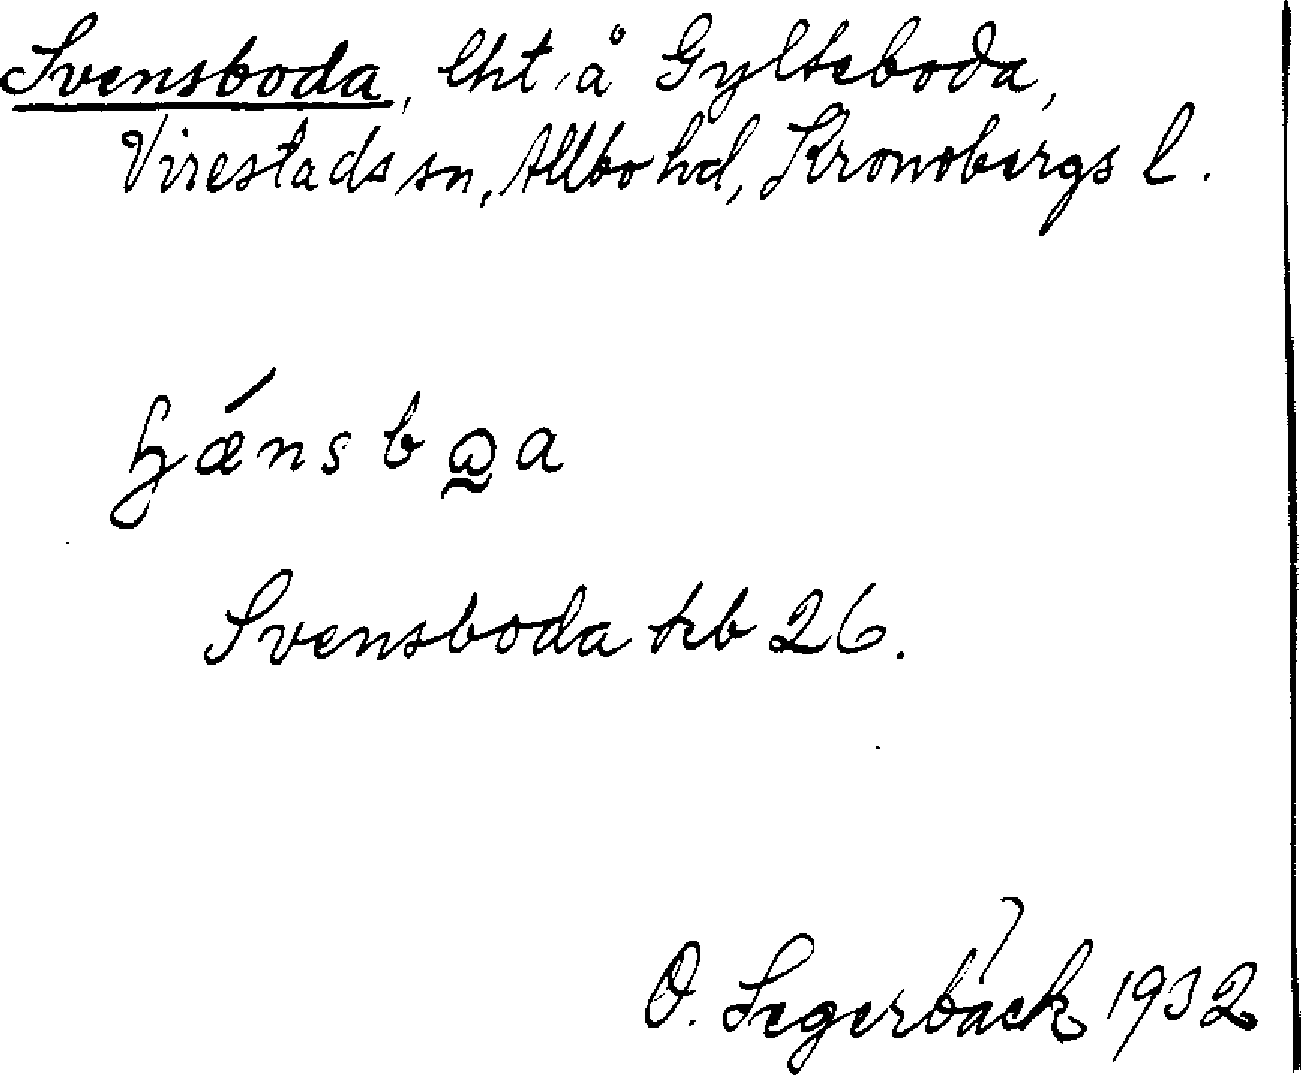 Svensboda, lht. å Gylteboda,
Virestads sn, Allbo hd, Kronobergs l.
Svensboda kb 26.
O. Segerbäck 1932